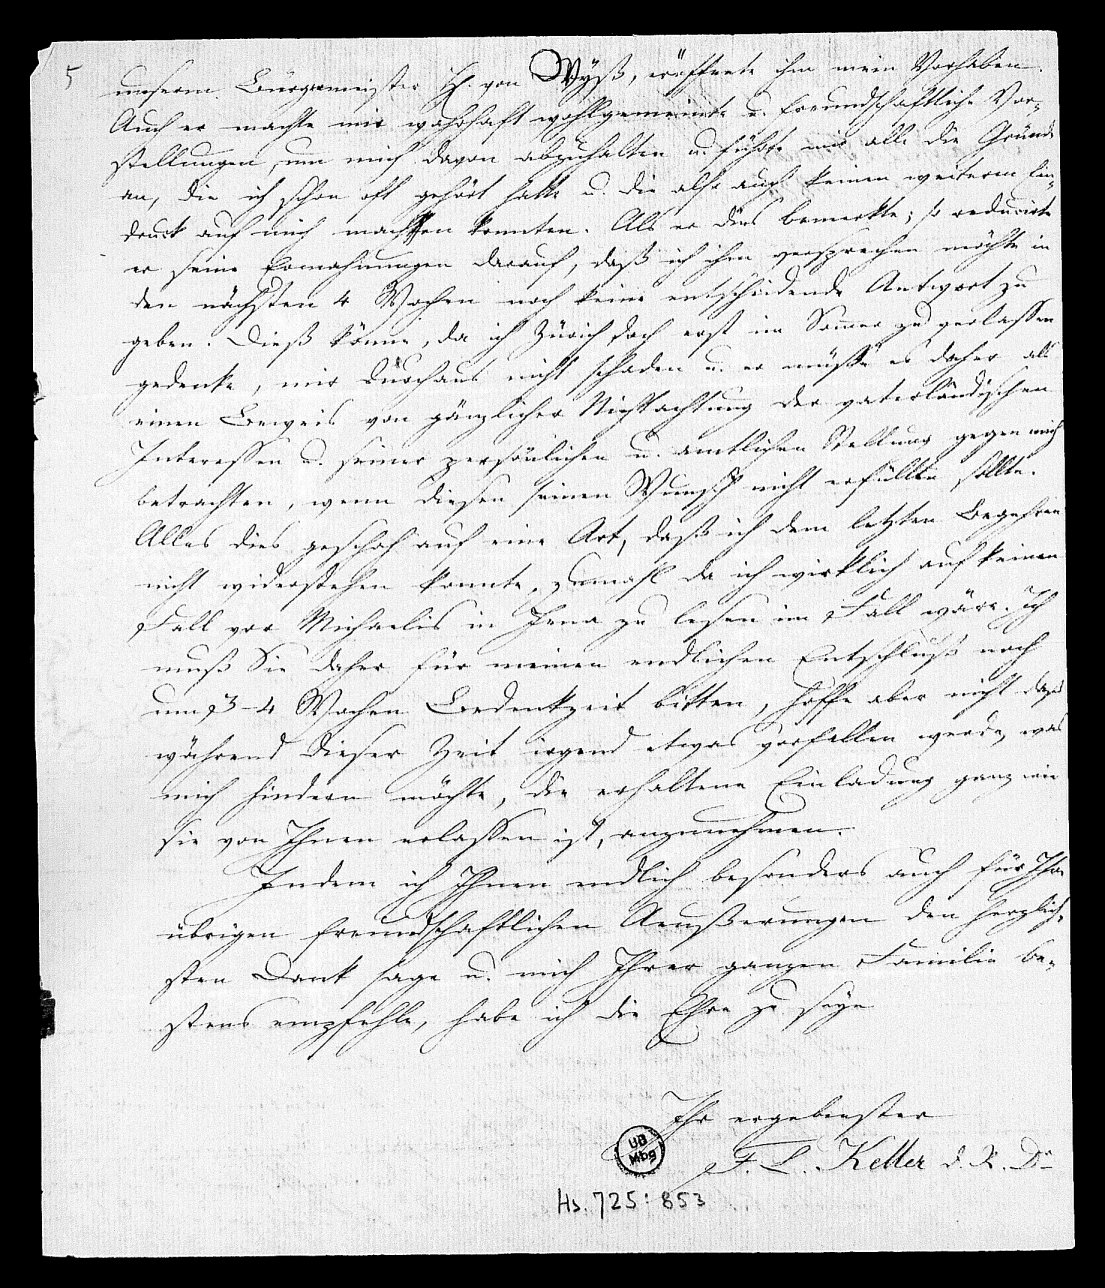 5
unserm Bürgermeister H. von Wyß, eröffnete ihm mein Vorhaben.
Auch er machte mir wahrhaft wohlgemeinte u. freundschaftliche Vor-
stellungen, um mich davon abzuhalten u. führte mir alle die Gründe
an, die ich schon oft gehört hatte u. die also auch keinen weitern Ein-
druck auf mich machen konnten. Als er dies bemerkte; so reducirte
er seine Ermahnungen darauf, daß ich ihm versprechen möchte in
den nächsten 4 Wochen noch keine entscheidende Antwort zu
geben. Dieß könne, da ich Zürich doch erst im Sommer zu verlassen
gedenke, mir durchaus nicht schaden u. er müßte es daher als
einen Beweis von gänzlicher Nichtachtung der vaterländischen
Interessen u. seiner persönlichen u. amtlichen Stellung gegen mich
betrachten, wenn diesen seinen Wunsch nicht erfüllen sollte.
Alles dies geschah auf eine Art, daß ich dem letzten Begehren
nicht widerstehen konnte, zumahl da ich wirklich auf keinen
Fall vor Michaelis in Jena zu lesen im Fall wäre. Ich
muß Sie daher für meinen endlichen Entschluß noch
um 3-4 Wochen Bedenkzeit bitten, hoffe aber nicht daß
während dieser Zeit irgend etwas vorfallen werde, was
mich hindern möchte, die erhaltene Einladung ganz wie
sie von Ihnen erlassen ist, anzunehmen.
Indem ich Ihnen endlich besonders auch für Ihre
übrigen freundschaftlichen Aeußerungen den herzlich-
sten Dank sage u. mich Ihrer ganzen Familie be-
stens empfehle, habe ich die Ehre zu seyn
Ihr ergebenster
F. L. Keller d. R. Dr
UB
Mbg
Hs. 725:853